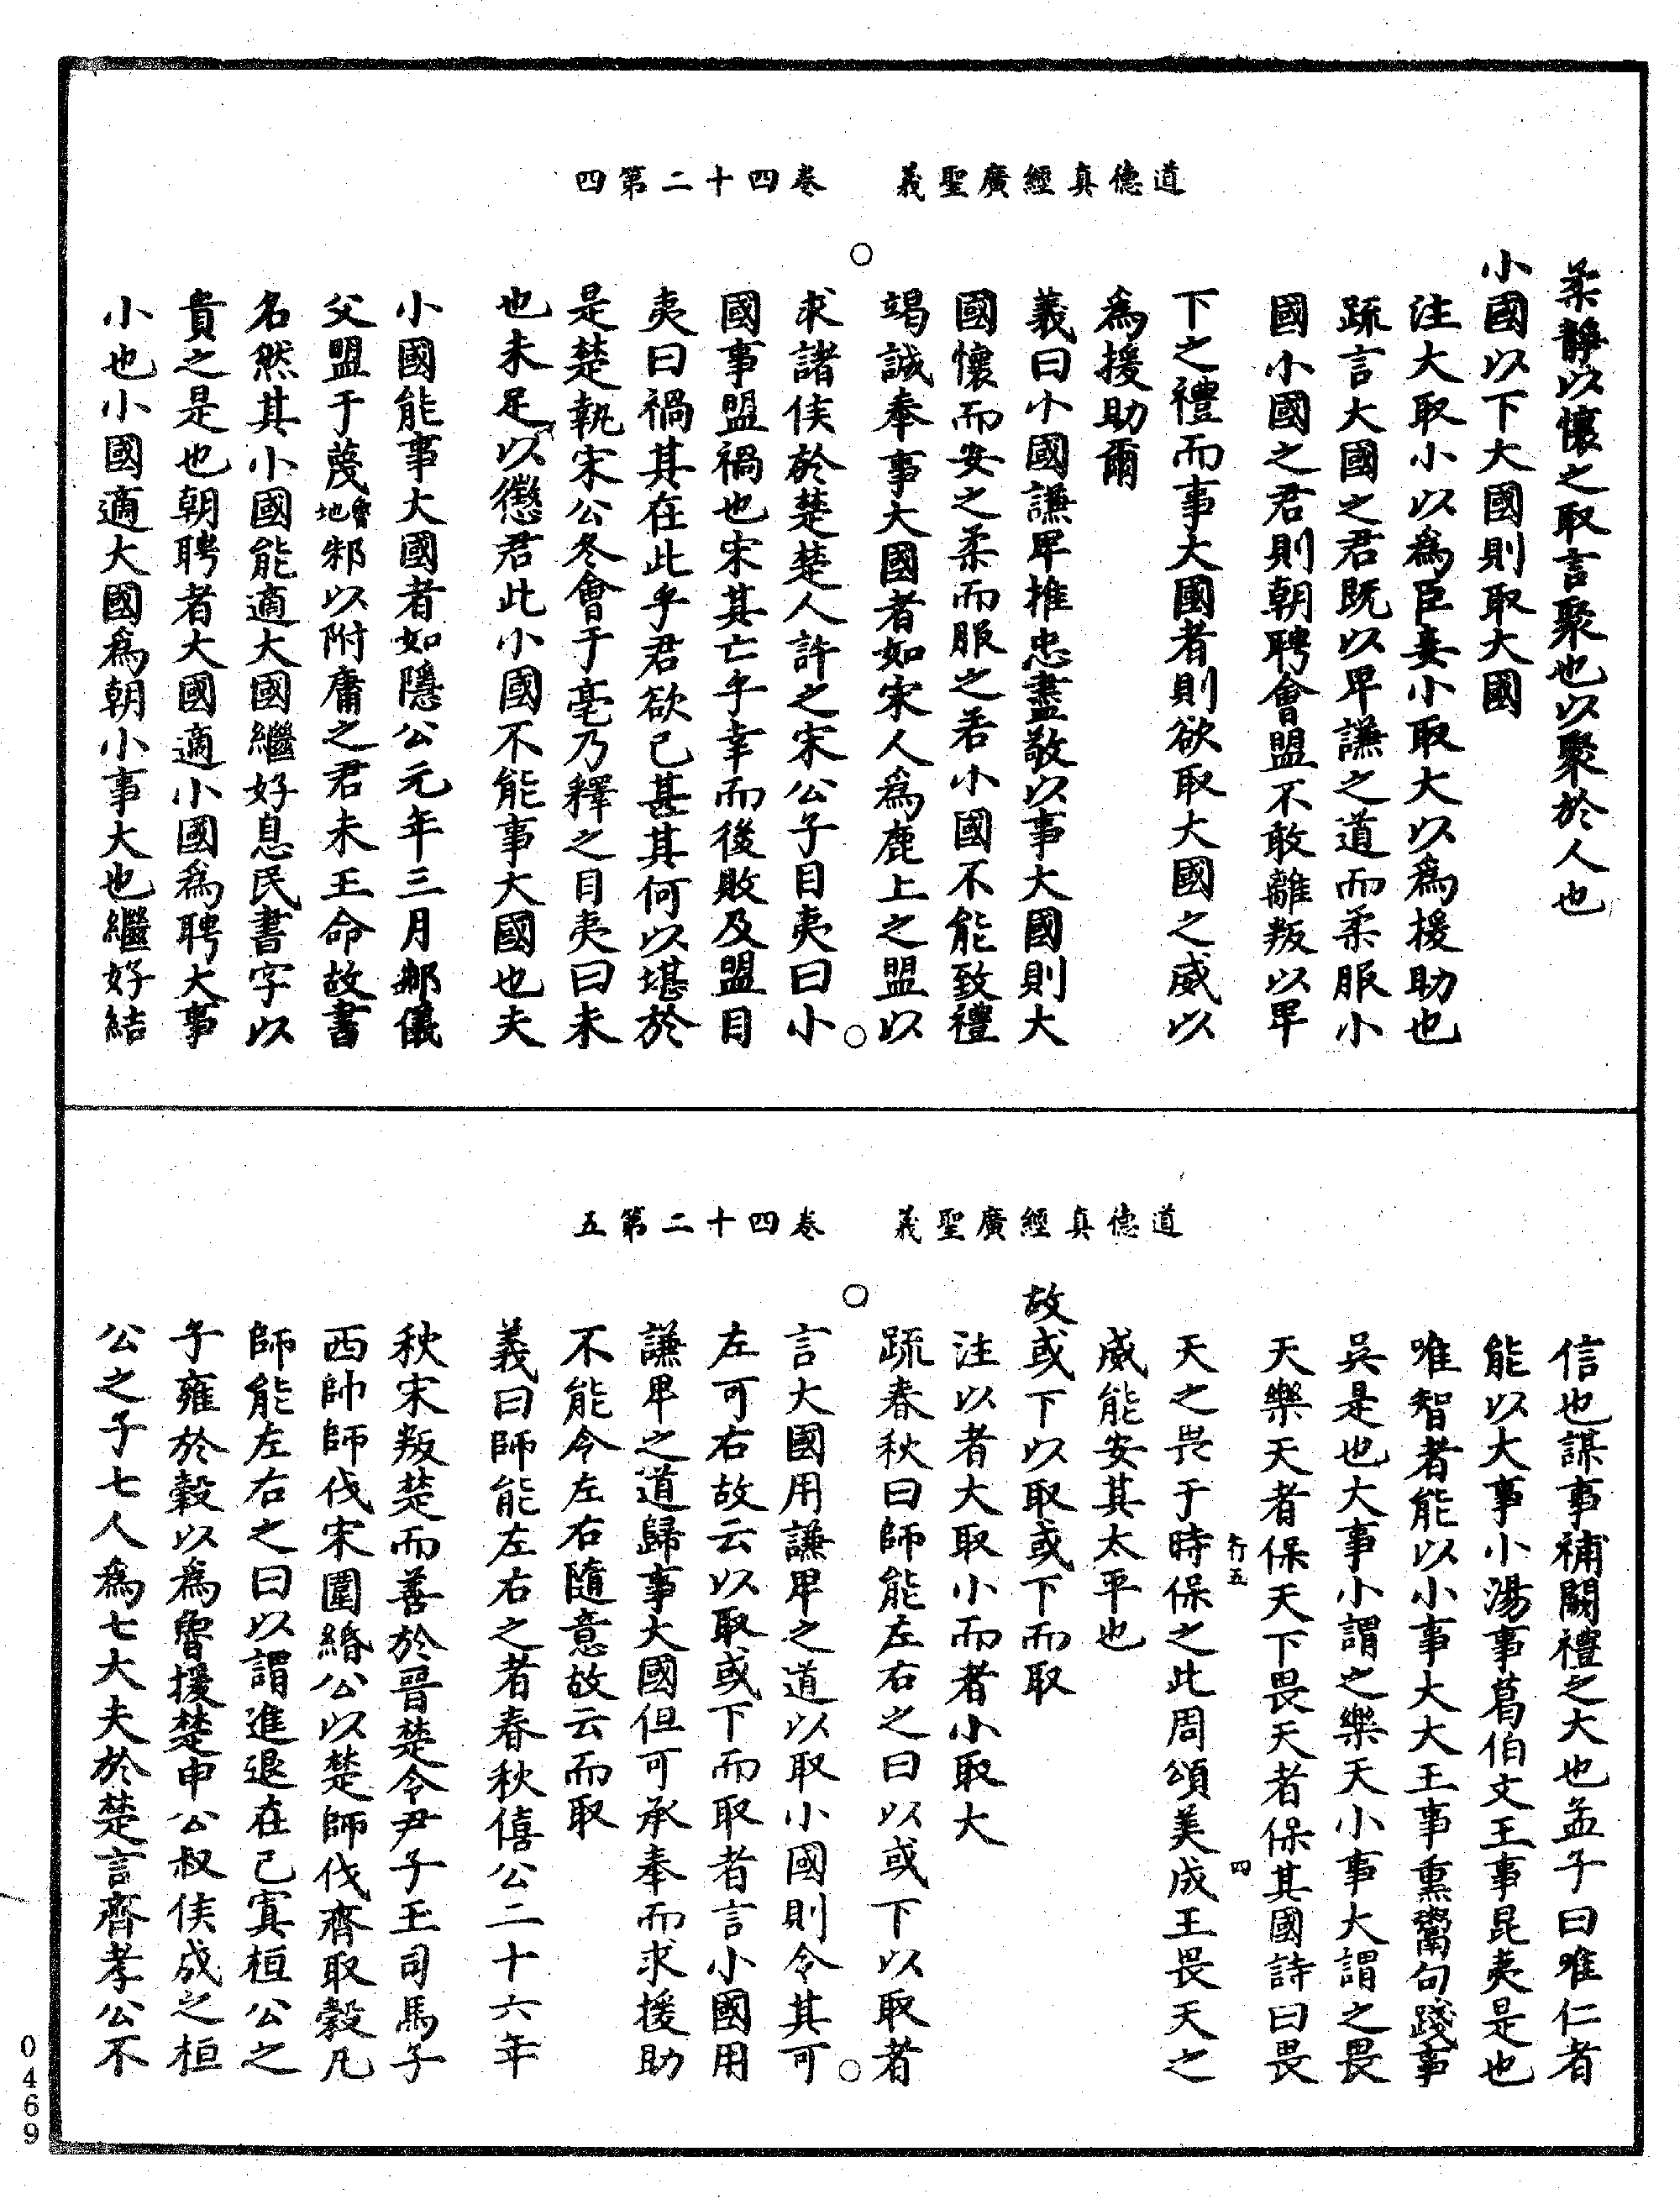 道德真經廣聖義　卷四十二第四
柔靜以懷之取言聚也以聚於人也
小國以下大國則取大國
注大取小以為臣妾小取大以為援助也
疏言大國之君既以卑謙之道而柔服小
國小國之君則朝聘會盟不敢離叛以卑
下之禮而事大國者則欲取大國之威以
為援助爾
義曰小國謙卑推忠盡敬以事大國則大
國懷而安之柔而服之若小國不能致禮
竭誠奉事大國者如宋人為鹿上之盟以
求諸侯於楚楚人許之宋公子目夷曰小
國事盟禍也宋其亡乎幸而後敗及盟目
夷曰禍其在此乎君欲已甚其何以堪於
是楚執宋公冬會于亳乃釋之目夷曰未
也未足以懲君此小國不能事大國也夫
小國能事大國者如隱公元年三月邾儀
父盟于蔑魯地邾以附庸之君未王命故書
名然其小國能適大國繼好息民書字以
貴之是也朝聘者大國適小國為聘大事
小也小國適大國為朝小事大也繼好結
道德真經廣聖義　卷四十二第五
信也謀事補闕禮之大也孟子曰唯仁者
能以大事小湯事葛伯文王事昆夷是也
唯智者能以小事大大王事熏鬻句踐事
吳是也大事小謂之樂天小事大謂之畏
天樂天者保天下畏天者保其國詩曰畏
竹五　四
天之畏于時保之此周頌美成王畏天之
威能安其太平也
故或下以取或下而取
注以者大取小而者小取大
疏春秋曰師能左右之曰以或下以取者
言大國用謙卑之道以取小國則令其可
左可右故云以取或下而取者言小國用
謙卑之道歸事大國但可承奉而求援助
不能令左右隨意故云而取
義曰師能左右之者春秋僖公二十六年
秋宋叛楚而善於晉楚令尹子玉司馬子
西帥師伐宋圍緡公以楚師伐齊取穀凡
師能左右之曰以謂進退在己寘桓公之
子雍於穀以為魯援楚申公叔侯戍之桓
公之子七人為七大夫於楚言齊孝公不
0469